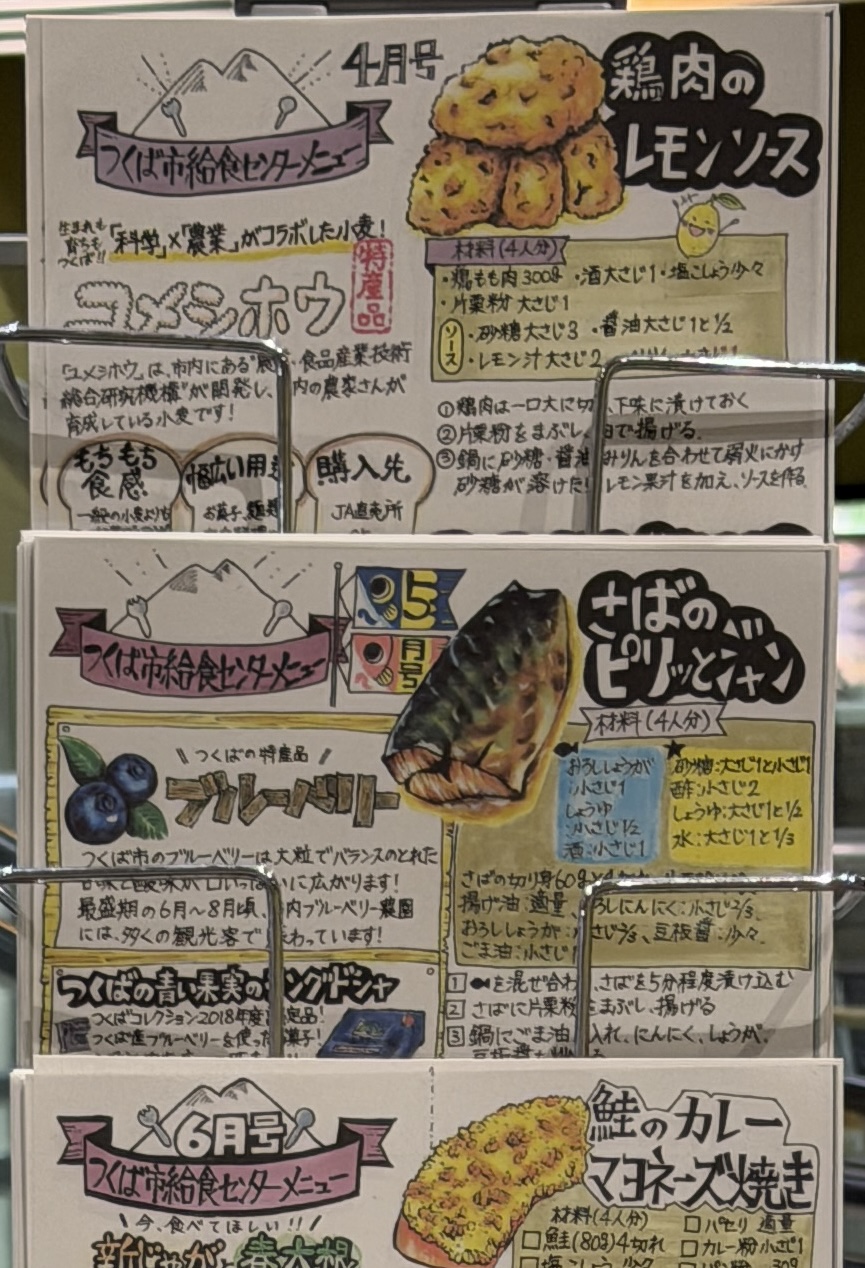 4月号
つくば市給食センターメニュー
鶏肉の
レモンソース
生まれも
育ちも
つくば!!
「科学」×「農業」がコラボした小麦!
特産品
ユメシホウ
「ユメシホウ」は、市内にある"農・食品産業技術
総合研究機構"が開発し、内の農家さんが
育成している小麦です!
もちもち
食感
一般の小麦よりも
幅広い用途
お菓子、麺類
購入先
JA直売所
材料(4人分)
・鶏もも肉300g ・酒大さじ1・塩こしょう少々
・片栗粉 大さじ1
ソース
・砂糖大さじ3 ・醤油大さじ1と1/2
・レモン汁大さじ2
①鶏肉は一口大に切り、下味に漬けておく
②片栗粉をまぶし、油で揚げる。
③鍋に砂糖・醤油・みりんを合わせて弱火にかけ
砂糖が溶けたら レモン果汁を加え、ソースを作る。
つくば市給食センターメニュー
5月号
さばの
ピリッとジャン
つくばの特産品
ブルーベリー
つくば市のブルーベリーは大粒でバランスのとれた
甘味と酸味が口いっぱいに広がります!
最盛期の6月〜8月頃、市内ブルーベリー農園
には、多くの観光客で賑わっています!
つくばの青い果実のラングドシャ
つくばコレクション2018年度認定品!
つくば産ブルーベリーを使ったお菓子!
材料(4人分)
おろししょうが
:小さじ1
しょうゆ
:小さじ1/2
酒:小さじ1
砂糖:大さじ1と小さじ1
酢:小さじ2
しょうゆ:大さじ1と1/2
水:大さじ1と1/3
さばの切り身60g×4切れ
揚げ油:適量、おろしにんにく:小さじ2/3、
おろししょうが:小さじ2/3、豆板醤:少々、
ごま油:小さじ
1 を混ぜ合わせ、さばを5分程度漬け込む
2 さばに片栗粉をまぶし、揚げる
3 鍋にごま油を入れ、にんにく、しょうが、
6月号
つくば市給食センターメニュー
今、食べてほしい!!
新じゃがと春大根
鮭のカレー
マヨネーズ焼き
材料(4人分)
□鮭(80g)4切れ
□塩こしょう 少々
□パセリ 適量
□カレー粉 小さじ1
□パン粉 30g